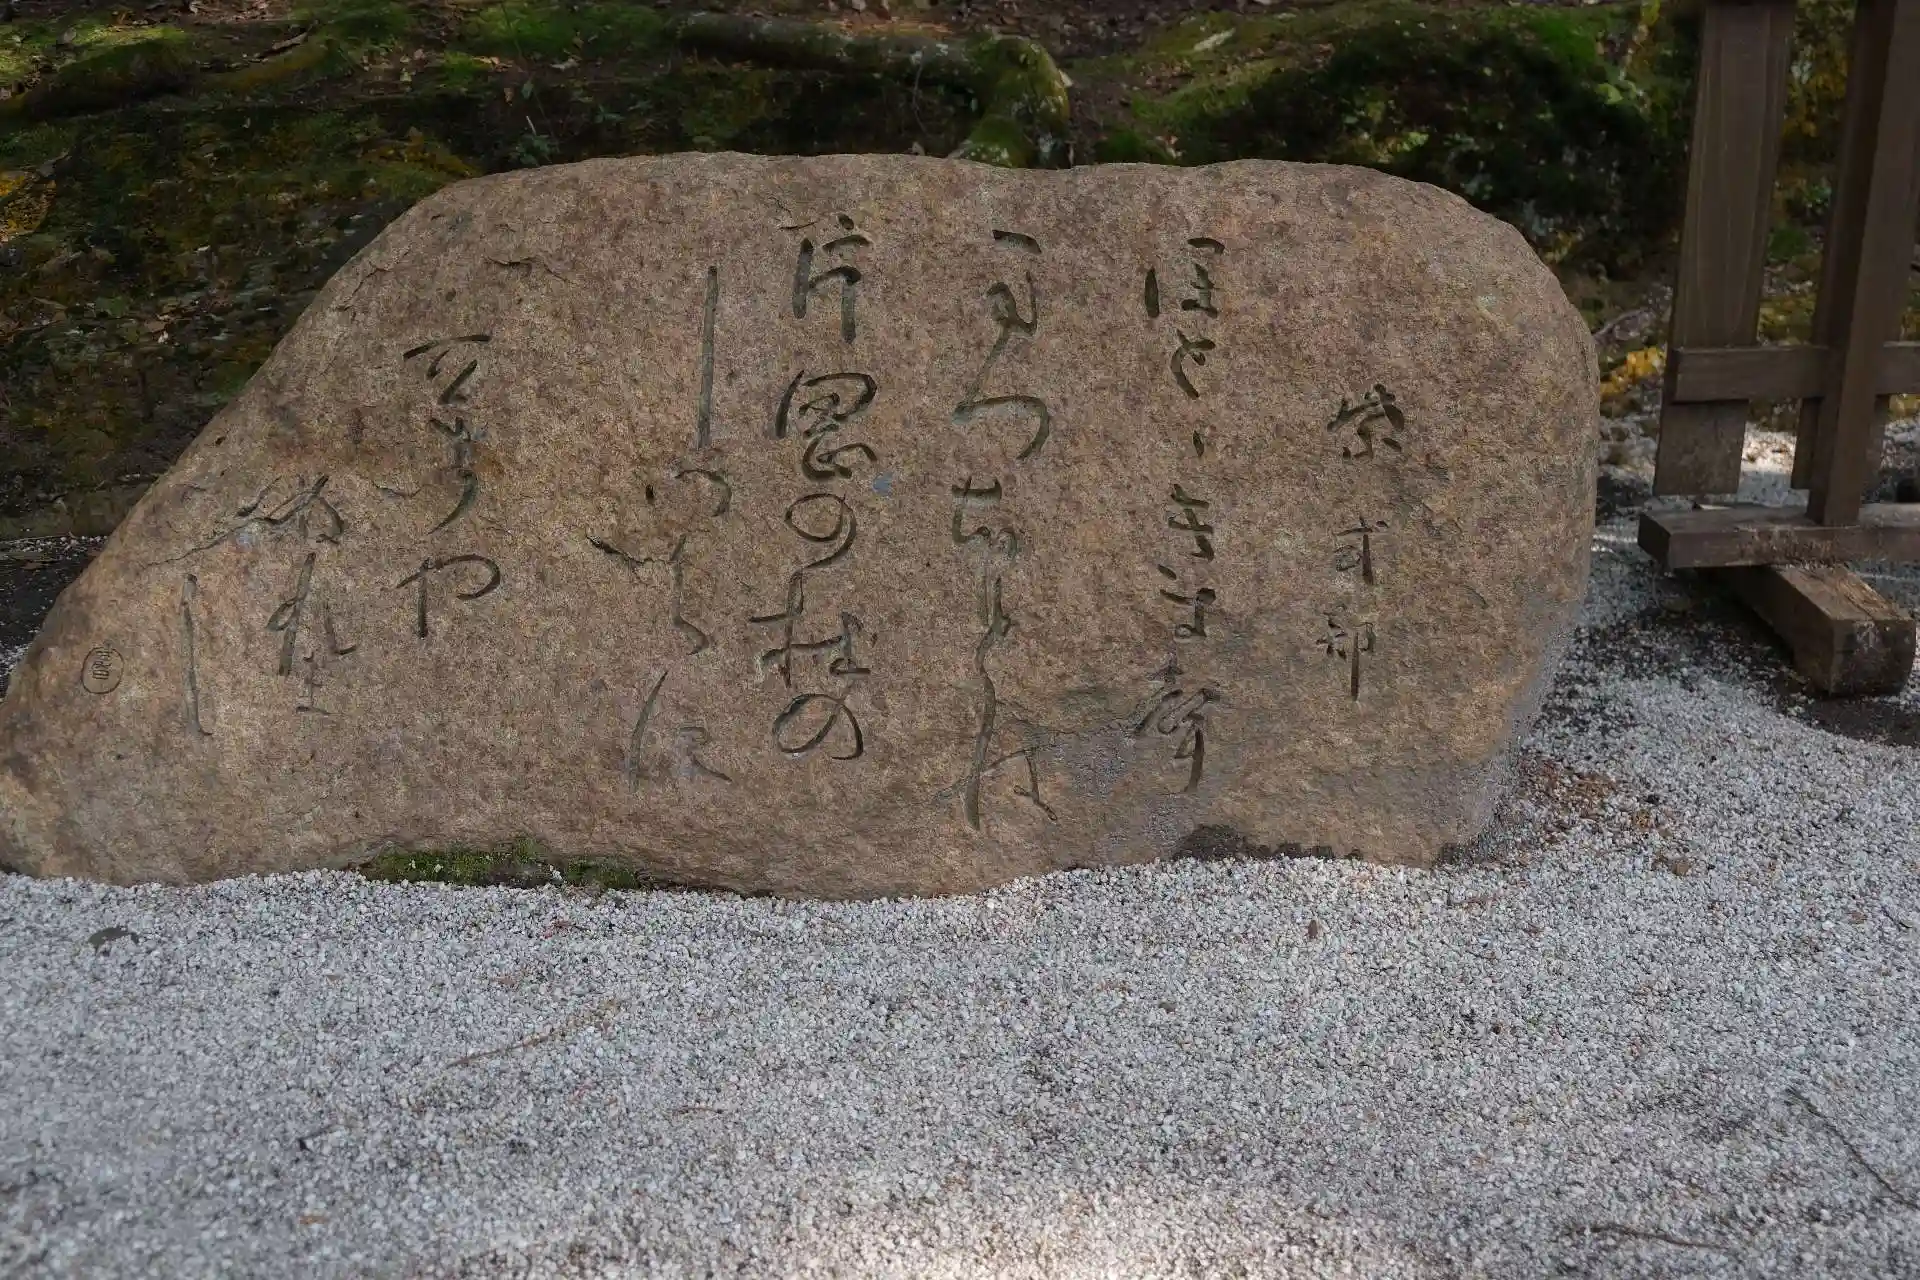 紫式部
ほとゝきす聲
まつほとは
片岡の杜の
しつくに
立ちや
ぬれま
し